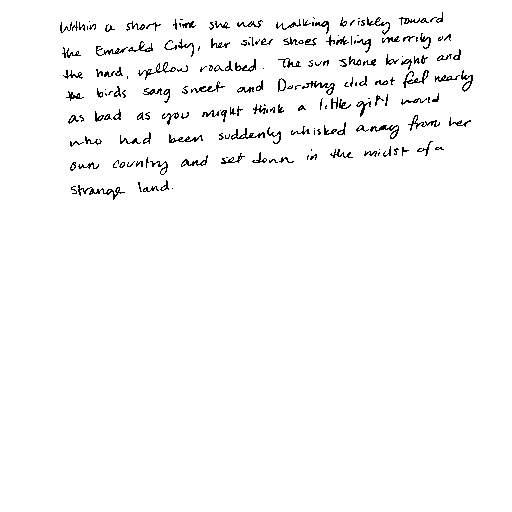 Within a short time she was walking briskly toward
the Emerald City, her silver shoes tinkling merrily on
the hard, yellow roadbed. The sun shone bright and
the birds sang sweet and Dorothy did not feel nearly
as bad as you might think a little girl would
who had been suddenly whisked away from her
own country and set down in the midst of a
strange land.